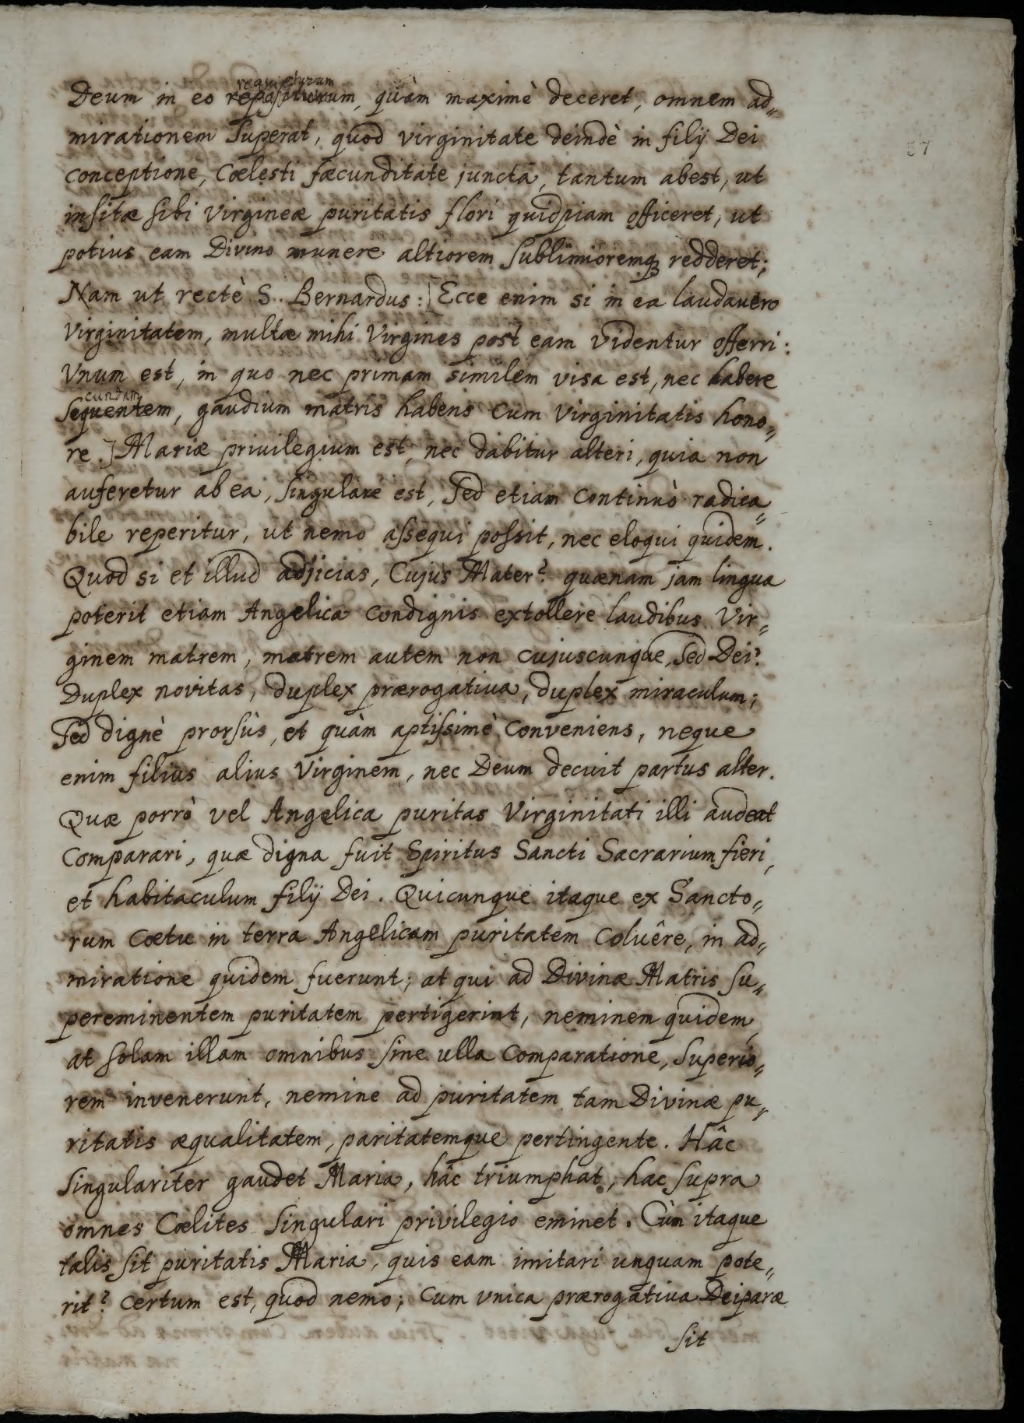 requieturum
Deum in eo repositurum, quàm maximè deceret, omnem ad„
mirationem superat, quod virginitate deindè in filij Dei
conceptione, Cœlesti fæcunditate junctâ, tantum abest, ut
insitæ sibi Virgineæ puritatis flori quidpiam officeret, ut
potius eam Divino munere altiorem sublimioremq; redderet;
Nam ut rectè S. Bernardus: [Ecce enim si in ea laudavero
Virginitatem, multæ mihi Virgines post eam videntur offerri:
Vnum est, in quo nec primam similem visa est, nec habere
cundam
sequentem, gaudium matris habens cum Virginitatis hono„
re.] Mariæ privilegium est, nec dabitur alteri, quia non
auferetur ab ea, singulare est, sed etiam continuò radica„
bile reperitur, ut nemo assequi possit, nec eloqui quidem.
Quod si et illud adjicias, Cujus Mater? quænam jam lingua
poterit etiam Angelica condignis extollere laudibus Vir„
ginem matrem, matrem autem non cujuscunque, sed Dei?
Duplex novitas, duplex prærogativa, duplex miraculum;
sed dignè prorsùs, et quàm aptissimè conveniens, neque
enim filius alius Virginem, nec Deum decuit partus alter.
Quæ porrò vel Angelica puritas Virginitati illi audeat
comparari, quæ digna fuit Spiritus Sancti Sacrarium fieri,
et habitaculum filij Dei. Quicunque itaque ex Sancto„
rum Cœtu in terra Angelicam puritatem coluêre, in ad„
miratione quidem fuerunt; at qui ad Divinæ Matris su„
pereminentem puritatem pertigerint, neminem quidem,
at solam illam omnibus sine ulla comparatione, superio„
rem invenerunt, nemine ad puritatem tam Divinæ pu„
ritatis æqualitatem, paritatemque pertingente. Hâc
singulariter gaudet Maria, hâc triumphat, hac supra
omnes Cœlites singulari privilegio eminet. Cùm itaque
talis sit puritatis Maria, quis eam imitari unquam pote„
rit? certum est, quod nemo; cum vnica prærogativa Deiparæ
sit
57